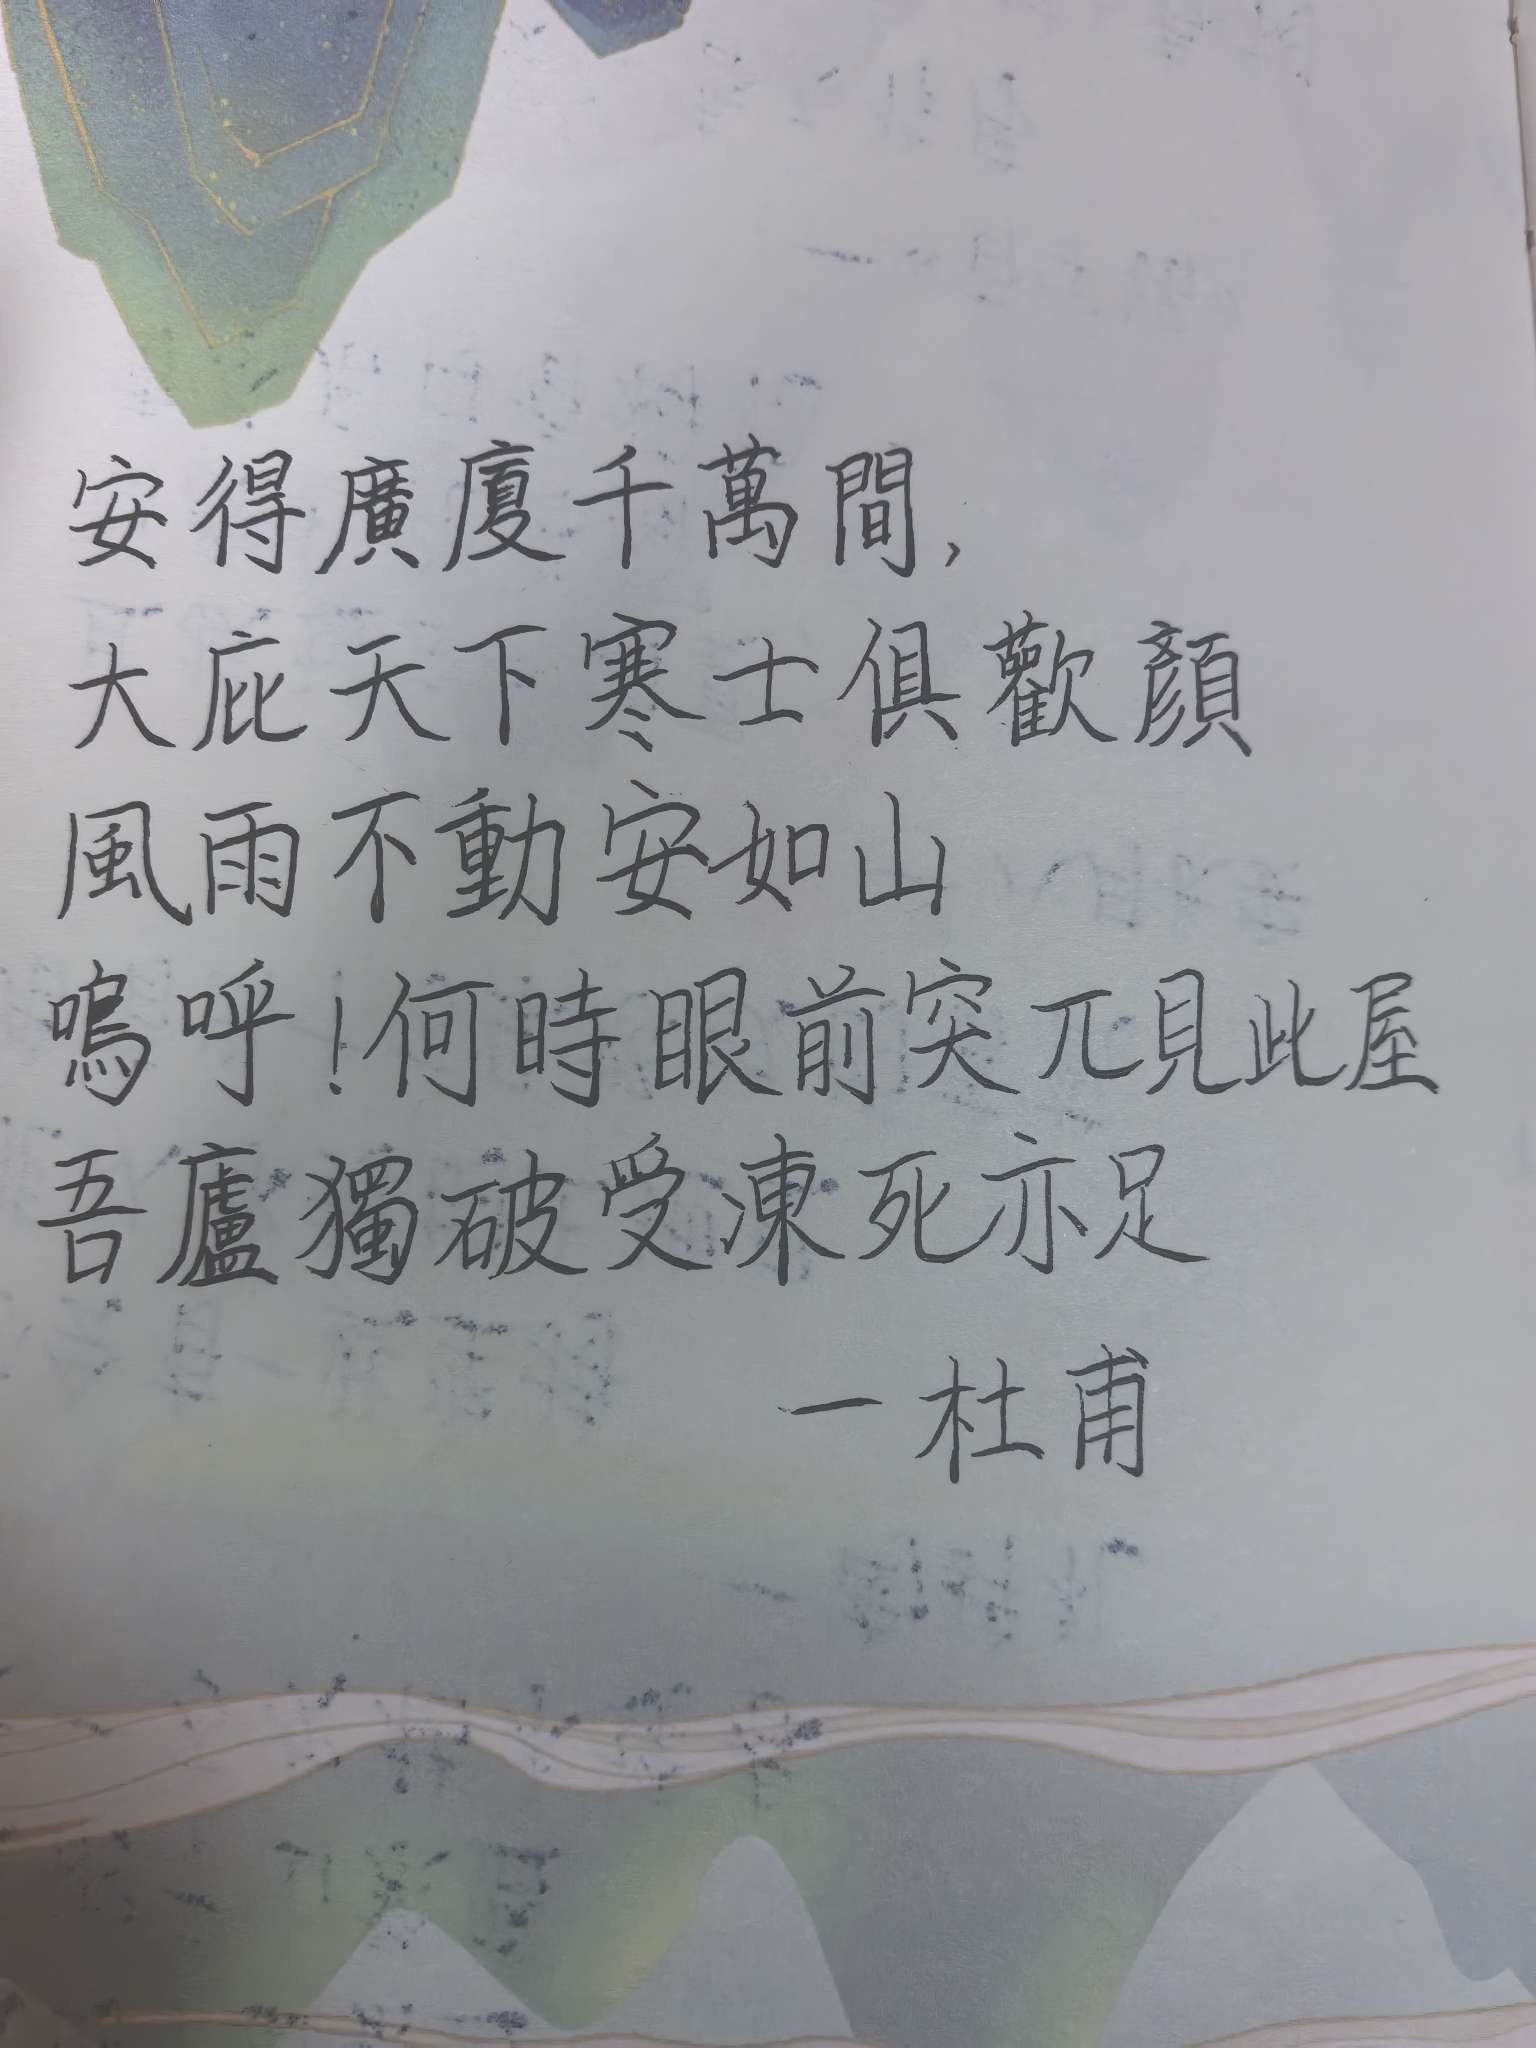 安得廣廈千萬間,
大庇天下寒士俱歡顏
風雨不動安如山
嗚呼!何時眼前突兀見此屋
吾廬獨破受凍死亦足
一杜甫